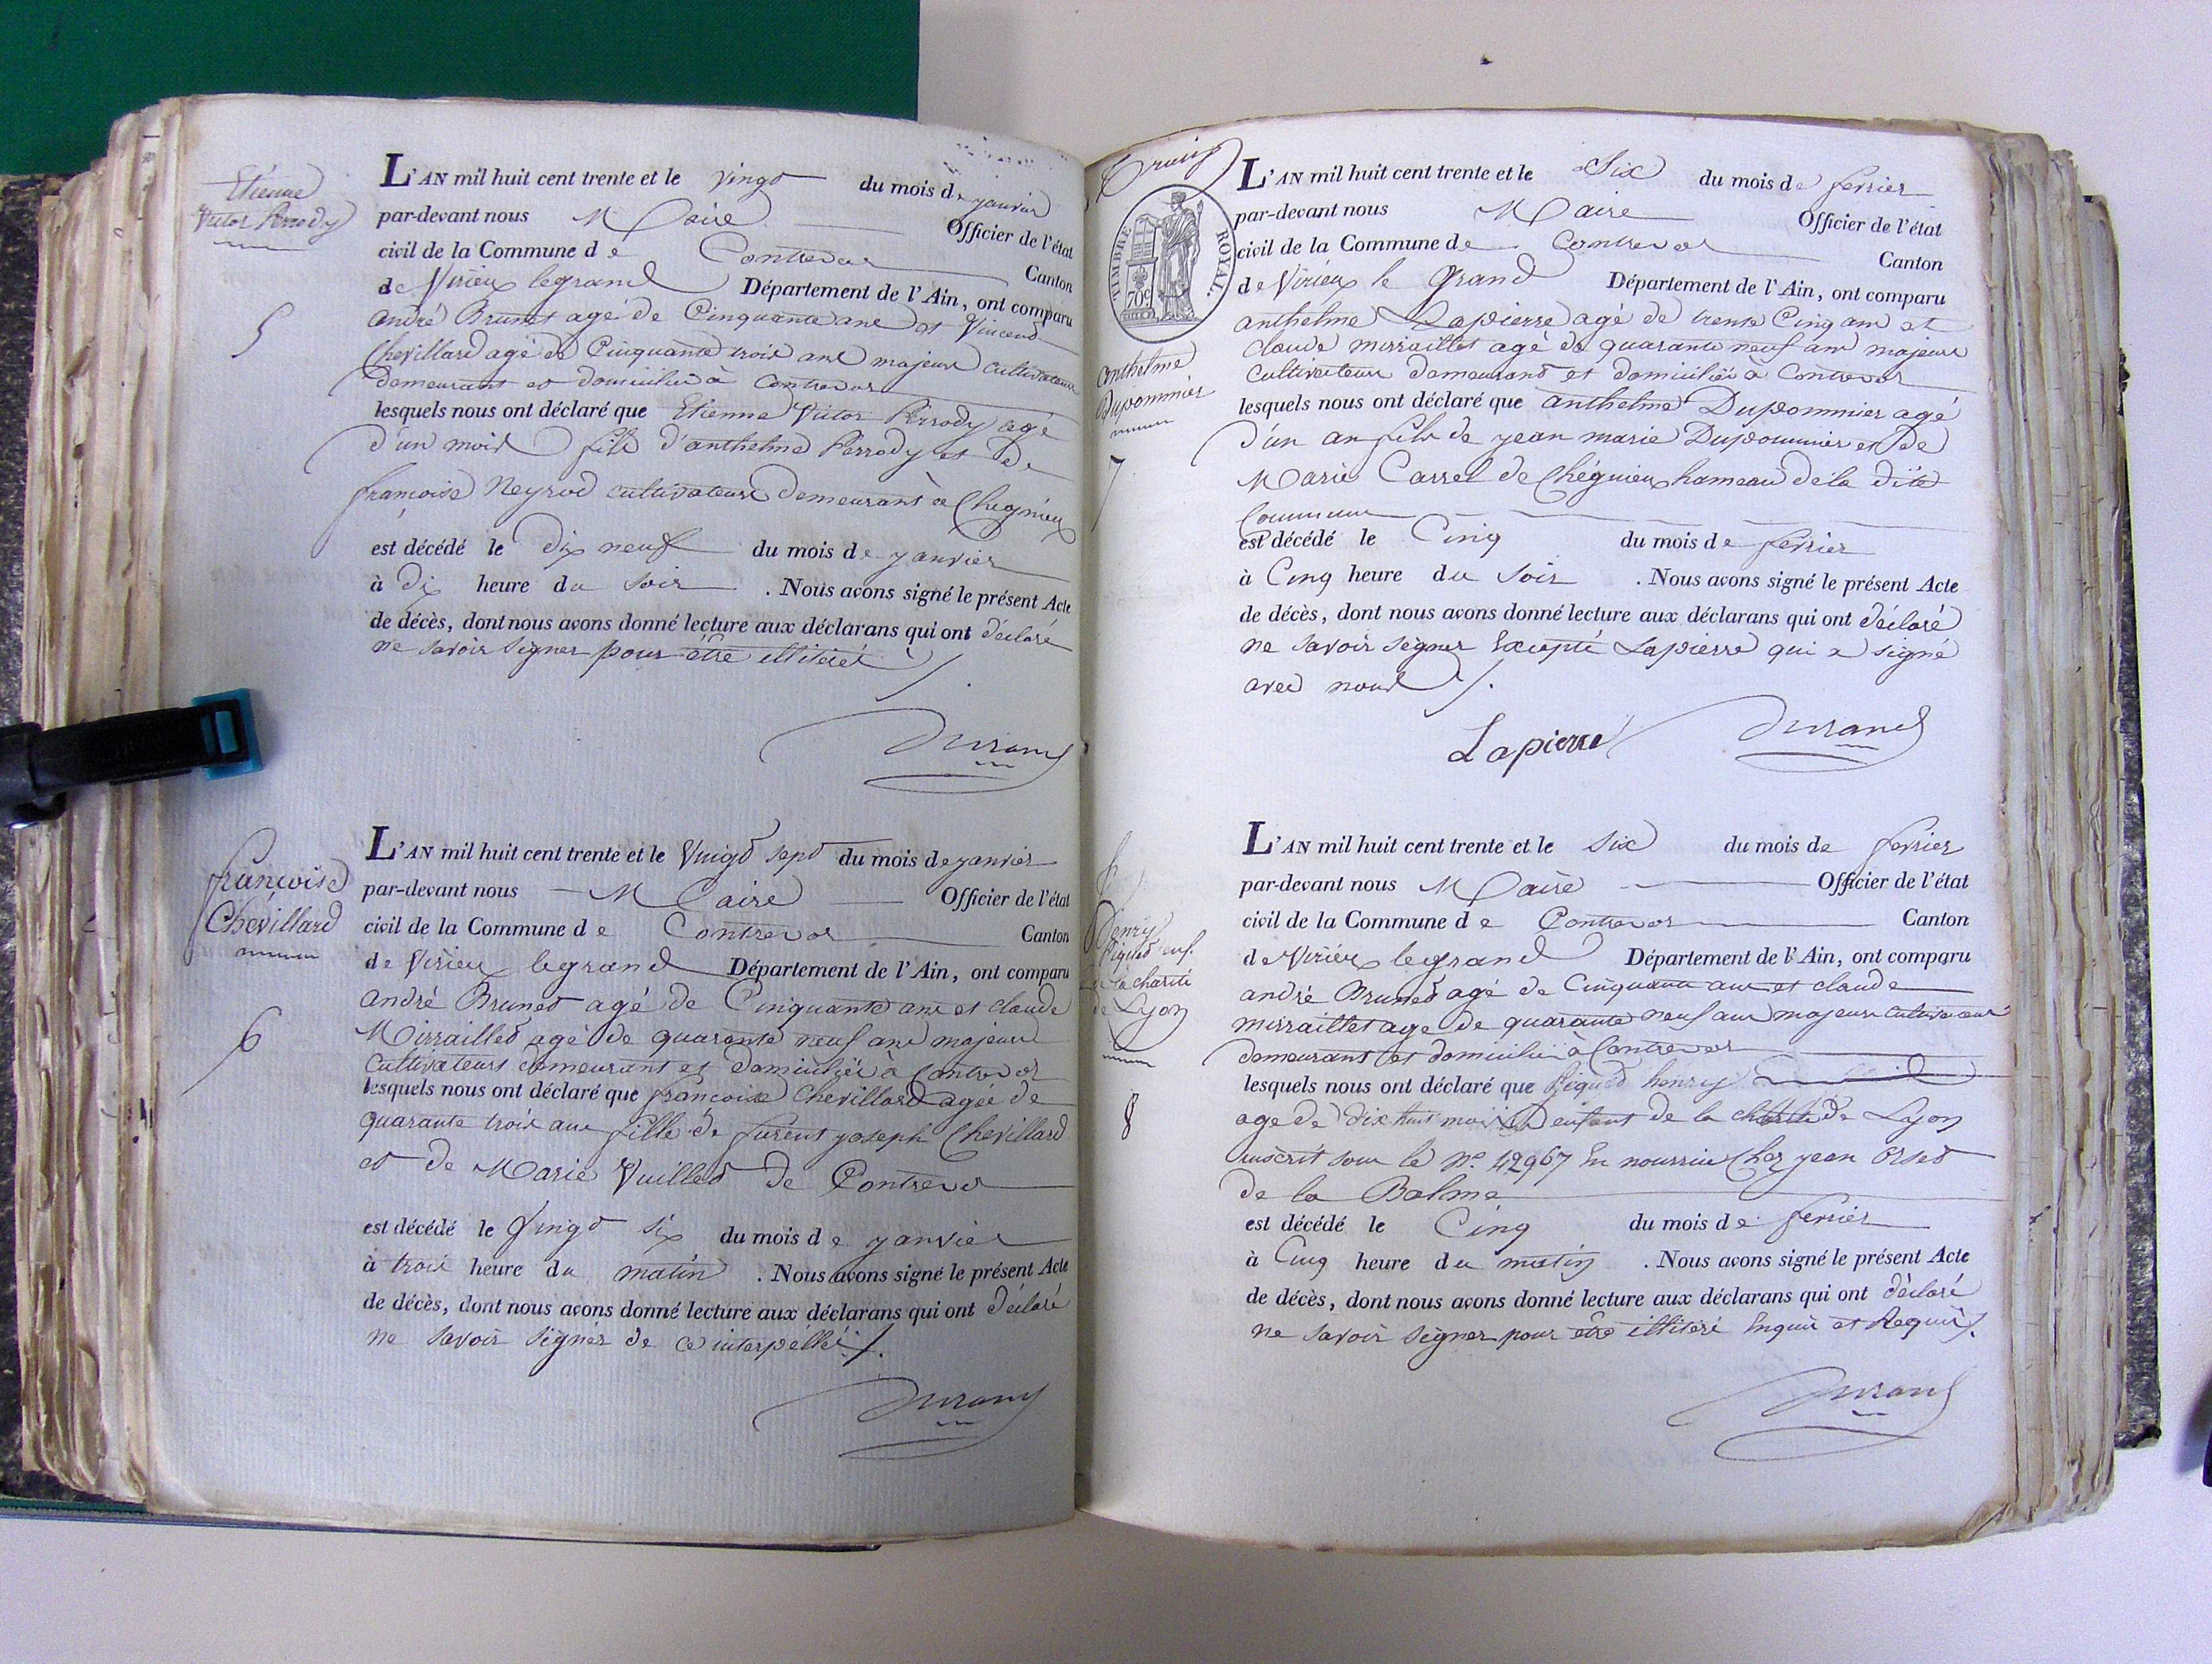 Etienne
Victor Perrody
5
L'AN mil huit cent trente et le vingt du mois de janvier
par-devant nous Maire Officier de l'état
civil de la Commune de Contrevoz Canton
de Virieu legrand Département de l'Ain, ont comparu
andré Brunet agé de Cinquante ans et Vincent
Chevillard agé de Cinquante trois ans majeurs cultivateurs
demeurant et domiciliés à Contrevoz
lesquels nous ont déclaré que Etienne Victor Perrody agé
d'un mois fils d'anthelme Perrody et de
françoise Neyrod cultivateurs demeurant à Chegnieu
est décédé le dix neuf du mois de janvier
à dix heure du soir . Nous avons signé le présent Acte
de décès, dont nous avons donné lecture aux déclarans qui ont déclaré
ne savoir signer pour être illitérés
Durand
françoise
Chevillard
6
L'AN mil huit cent trente et le Vingt sept du mois de janvier
par-devant nous Maire Officier de l'état
civil de la Commune de Contrevoz Canton
de Virieu legrand Département de l'Ain, ont comparu
andré Brunet agé de Cinquante ans et claude
Mirraillet agé de quarante neuf ans majeurs
cultivateurs demeurant et domiciliés à Contrevoz
lesquels nous ont déclaré que françoise Chevillard agée de
quarante trois ans fille de furent joseph Chevillard
et de Marie Vuillet de Contrevoz
est décédé le Vingt six du mois de janvier
à trois heure du matin . Nous avons signé le présent Acte
de décès, dont nous avons donné lecture aux déclarans qui ont déclaré
ne savoir signer de ce interpéllés
Durand
TIMBRE ROYAL.
70c
anthelme
Dupommier
7
L'AN mil huit cent trente et le Six du mois de fevrier
par-devant nous Maire Officier de l'état
civil de la Commune de Contrevoz Canton
de Virieu le Grand Département de l'Ain, ont comparu
anthelme Lapierre agé de trente Cinq ans et
claude mirraillet agé de quarante neuf ans majeurs
cultivateurs demeurant et domiciliés à Contrevoz
lesquels nous ont déclaré que anthelme Dupommier agé
d'un an fils de jean marie Dupommier et de
Marie Carrel de Chégnieu hameau de la dite
Commune
est décédé le Cinq du mois de fevrier
à Cinq heure du soir . Nous avons signé le présent Acte
de décès, dont nous avons donné lecture aux déclarans qui ont déclaré
ne savoir signer Excepté Lapierre qui a signé
avec nous
Lapierre Durand
henry
Piqued enf.
de la charité
de Lyon
8
L'AN mil huit cent trente et le six du mois de fevrier
par-devant nous Maire Officier de l'état
civil de la Commune de Contrevoz Canton
de Virieu legrand Département de l'Ain, ont comparu
andré Brunet agé de Cinquante ans et claude
mirraillet age de quarante neuf ans majeurs cultivateurs
demeurant et domiciliés à Contrevoz
lesquels nous ont déclaré que Piqued henry
age de dix huit mois enfant de la charité de Lyon
inscrit sous le No. 42967 En nourrice Chez jean Orset
de la Balme
est décédé le Cinq du mois de fevrier
à Cinq heure du matin . Nous avons signé le présent Acte
de décès, dont nous avons donné lecture aux déclarans qui ont déclaré
ne savoir signer pour être illitéré Enquis et Requis
Durand